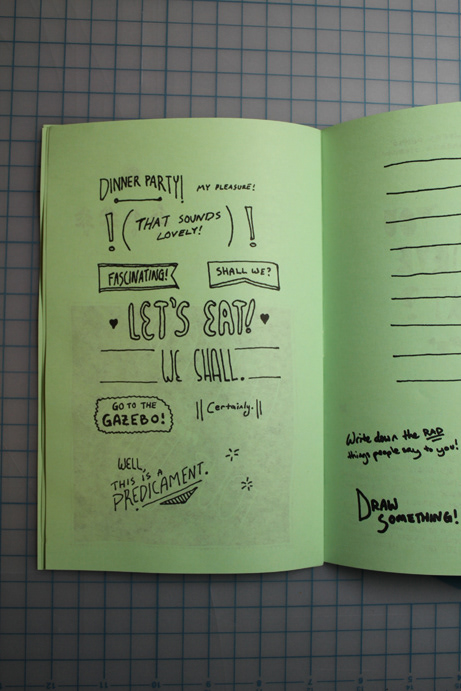 DINNER PARTY! MY PLEASURE!
! (THAT SOUNDS
LOVELY!) !
FASCINATING! SHALL WE?
♥ LET'S EAT! ♥
WE SHALL.
GO TO THE
GAZEBO! ||Certainly.||
WELL,
THIS IS A
PREDICAMENT.
Write down the RAD
things people say to you!
DRAW
SOMETHING!